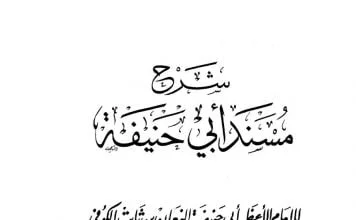 شرح
مسند أبي حنيفة
للإمام الأعظم أبي حنيفة النعمان بن ثابت الكوفي